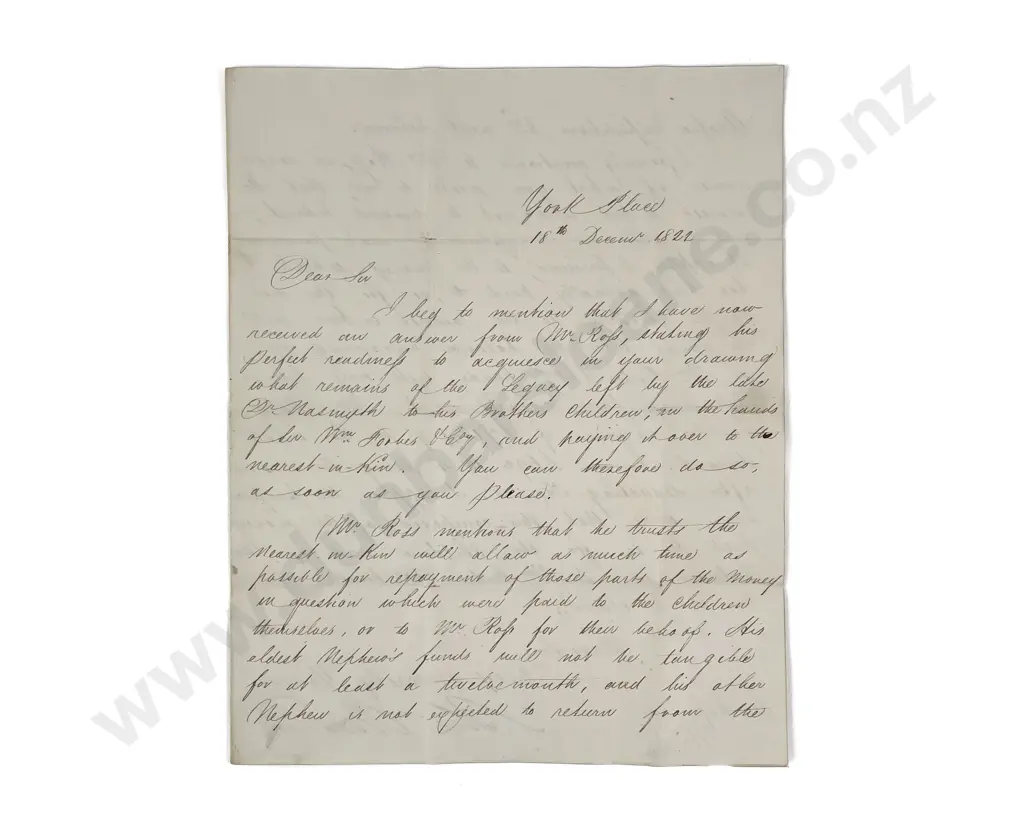 York Place
18th Decemr 1821
Dear Sir
I beg to mention that I have now
received an answer from Mr Ross, stating his
perfect readiness to acquiesce in your drawing
what remains of the Legacy left by the late
Dr Nasmyth to his Brothers Children, in the hands
of Sir Wm Forbes & Coy, and paying it over to the
nearest-in-Kin. You can therefore do so,
as soon as you please.
Mr Ross mentions that he trusts the
nearest-in-Kin will allow as much time as
possible for repayment of those parts of the Money
in question which were paid to the Children
themselves, or to Mr Ross for their behoof. His
eldest Nephew's funds will not be tangible
for at least a twelvemonth, and his other
Nephew is not expected to return from the
www.dunbarsloane.co.nz